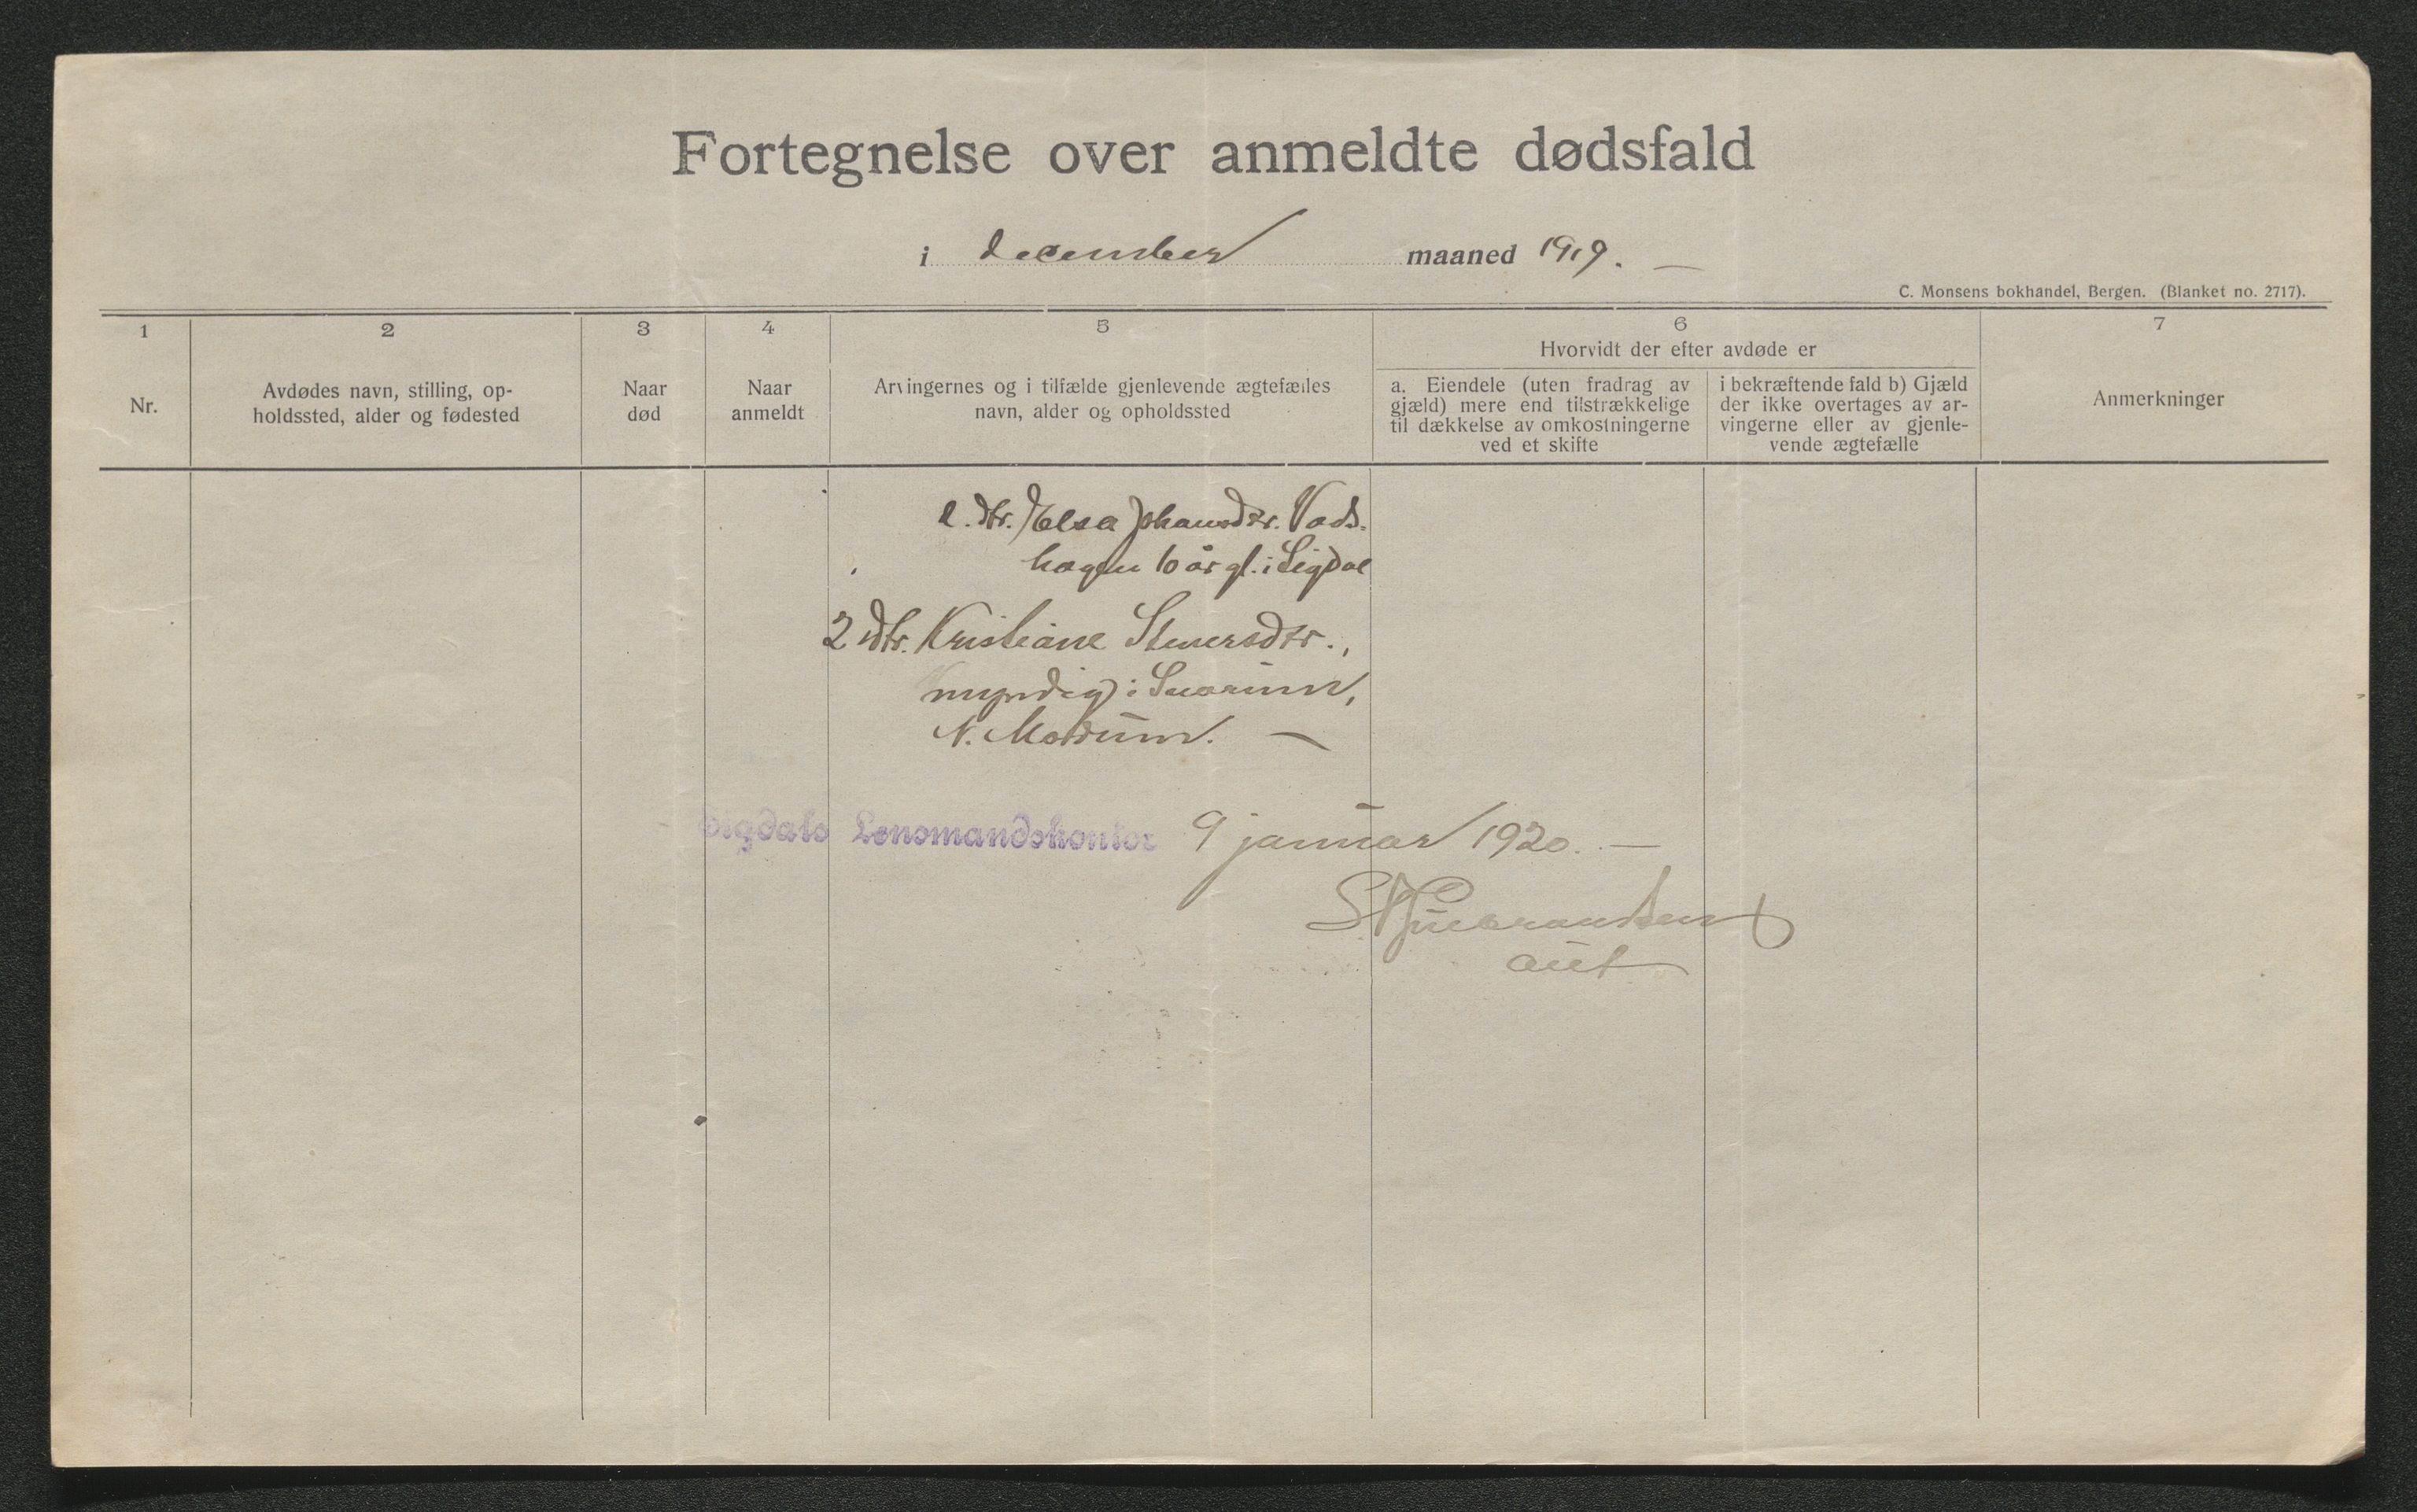 Fortegnelse over anmeldte dødsfald
i december maaned 1919. —
C. Monsens bokhandel, Bergen. (Blanket no. 2717).
1 2 3 4 5 6 7
Nr.
Avdødes navn, stilling, op-
holdssted, alder og fødested
Naar
død
Naar
anmeldt
Arvingernes og i tilfælde gjenlevende ægtefælles
navn, alder og opholdssted
Hvorvidt der efter avdøde er
a. Eiendele (uten fradrag av
gjæld) mere end tilstrækkelige
til dækkelse av omkostningerne
ved et skifte
i bekræftende fald b) Gjæld
der ikke overtages av ar-
vingerne eller av gjenle-
vende ægtefælle
Anmerkninger
dtr. Elsa Johansdtr. Vads-
hagen 6 år gl. i Sigdal
2 dtr. Kristiane Steuersdtr.,
myndig i Snarum,
N. Modum. —
Sigdals Lensmandskontor 9 januar 1920. —